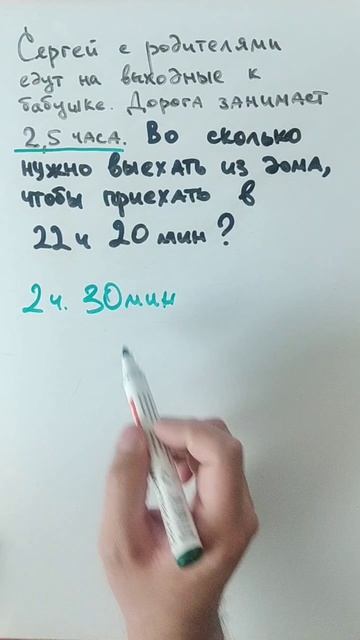 Сергей с родителями
едут на выходные к
бабушке. Дорога занимает
2,5 часа. Во сколько
нужно выехать из дома,
чтобы приехать в
22 ч 20 мин?
2 ч. 30 мин